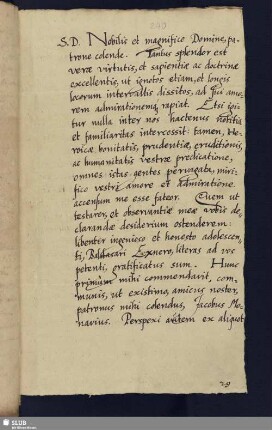 S.D. Nobilis et magnifice Domine, pa-
trone colende. Tantus splendor est
verae virtutis, et sapientiae ac doctrinae
excellentis, ut ignotos etiam, et longis
locorum intervallis dissitos, ad sui amo-
rem admirationemq rapiat. Etsi igi-
tur nulla inter nos hactenus notitia
et familiaritas intercessit: tamen, He-
roicae bonitatis, prudentiae, eruditionis,
ac humanitatis vestrae praedicatione,
omnes istas gentes pervagata, miri-
fice vestri amore et admiratione
accensum me esse fateor. Quem ut
testarer, et observantiae meae vobis de-
clarandae desiderium ostenderem:
libenter ingenioso et honesto adolescen-
ti, Balthasari Exnero, literas ad vos
petenti, gratificatus sum. Hunc
primum mihi commendavit, com-
munis, ut existimo, amicus noster,
patronus mihi colendus, Jacobus Mo-
navius. Perspexi autem ex aliquot
29
SLUB